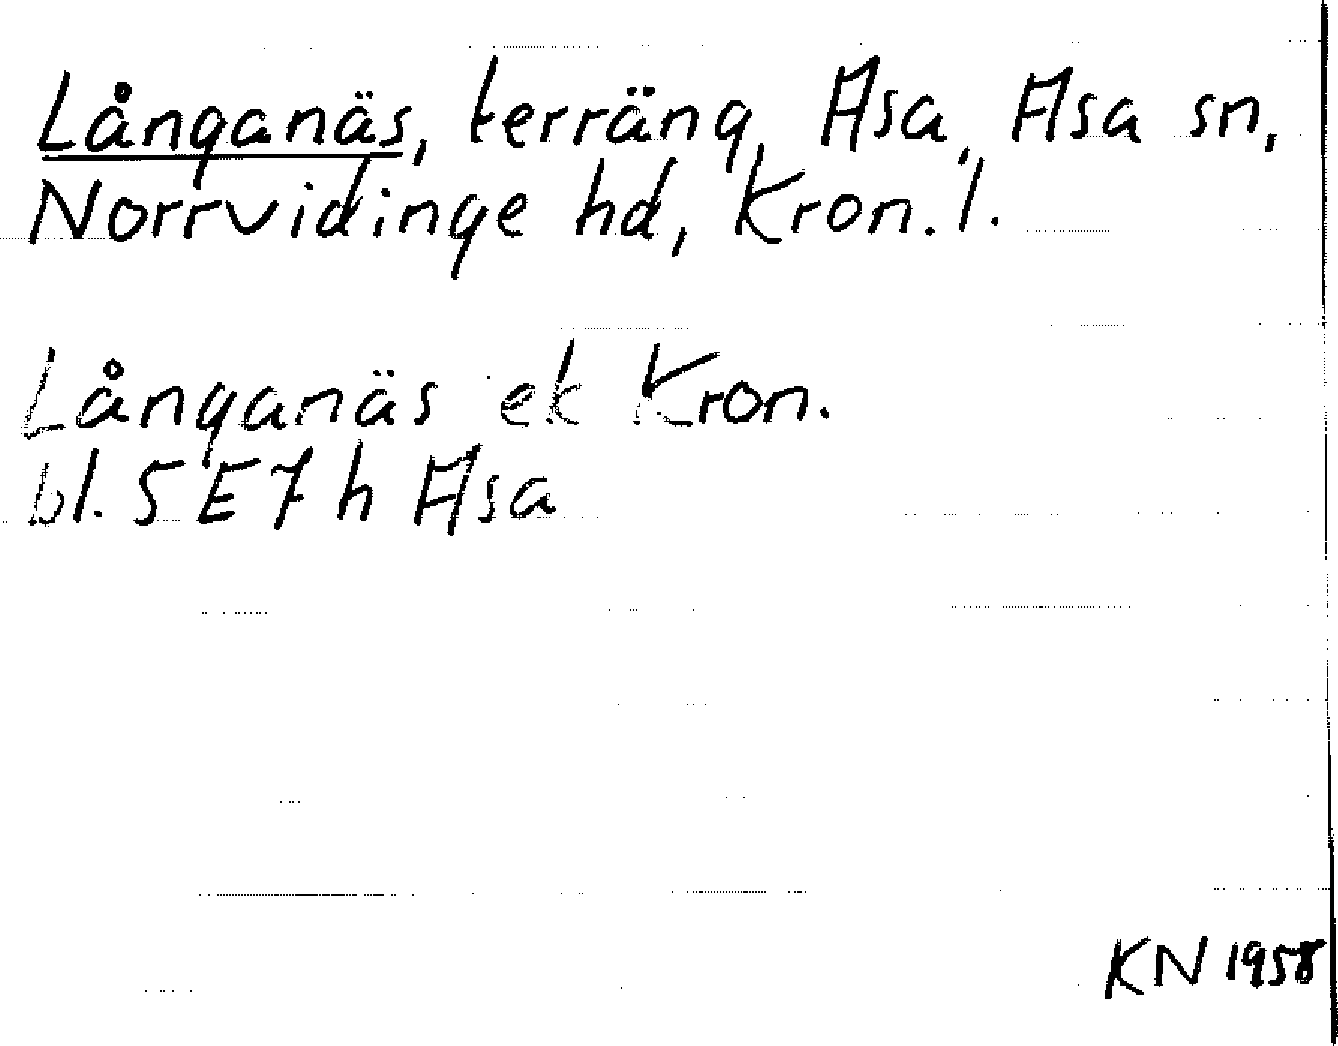 Långanäs, terräng, Asa, Asa sn,
Norrvidinge hd, Kron. l.
Långanäs ek Kron.
bl. 5 E 7 h Asa
KN 1958